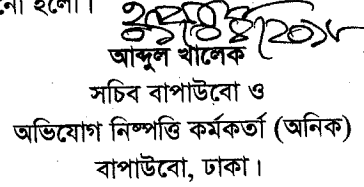 নো হলো।
আব্দুল খালেক
সচিব বাপাউবো ও
অভিযোগ নিষ্পত্তি কর্মকর্তা (অনিক)
বাপাউবো, ঢাকা।